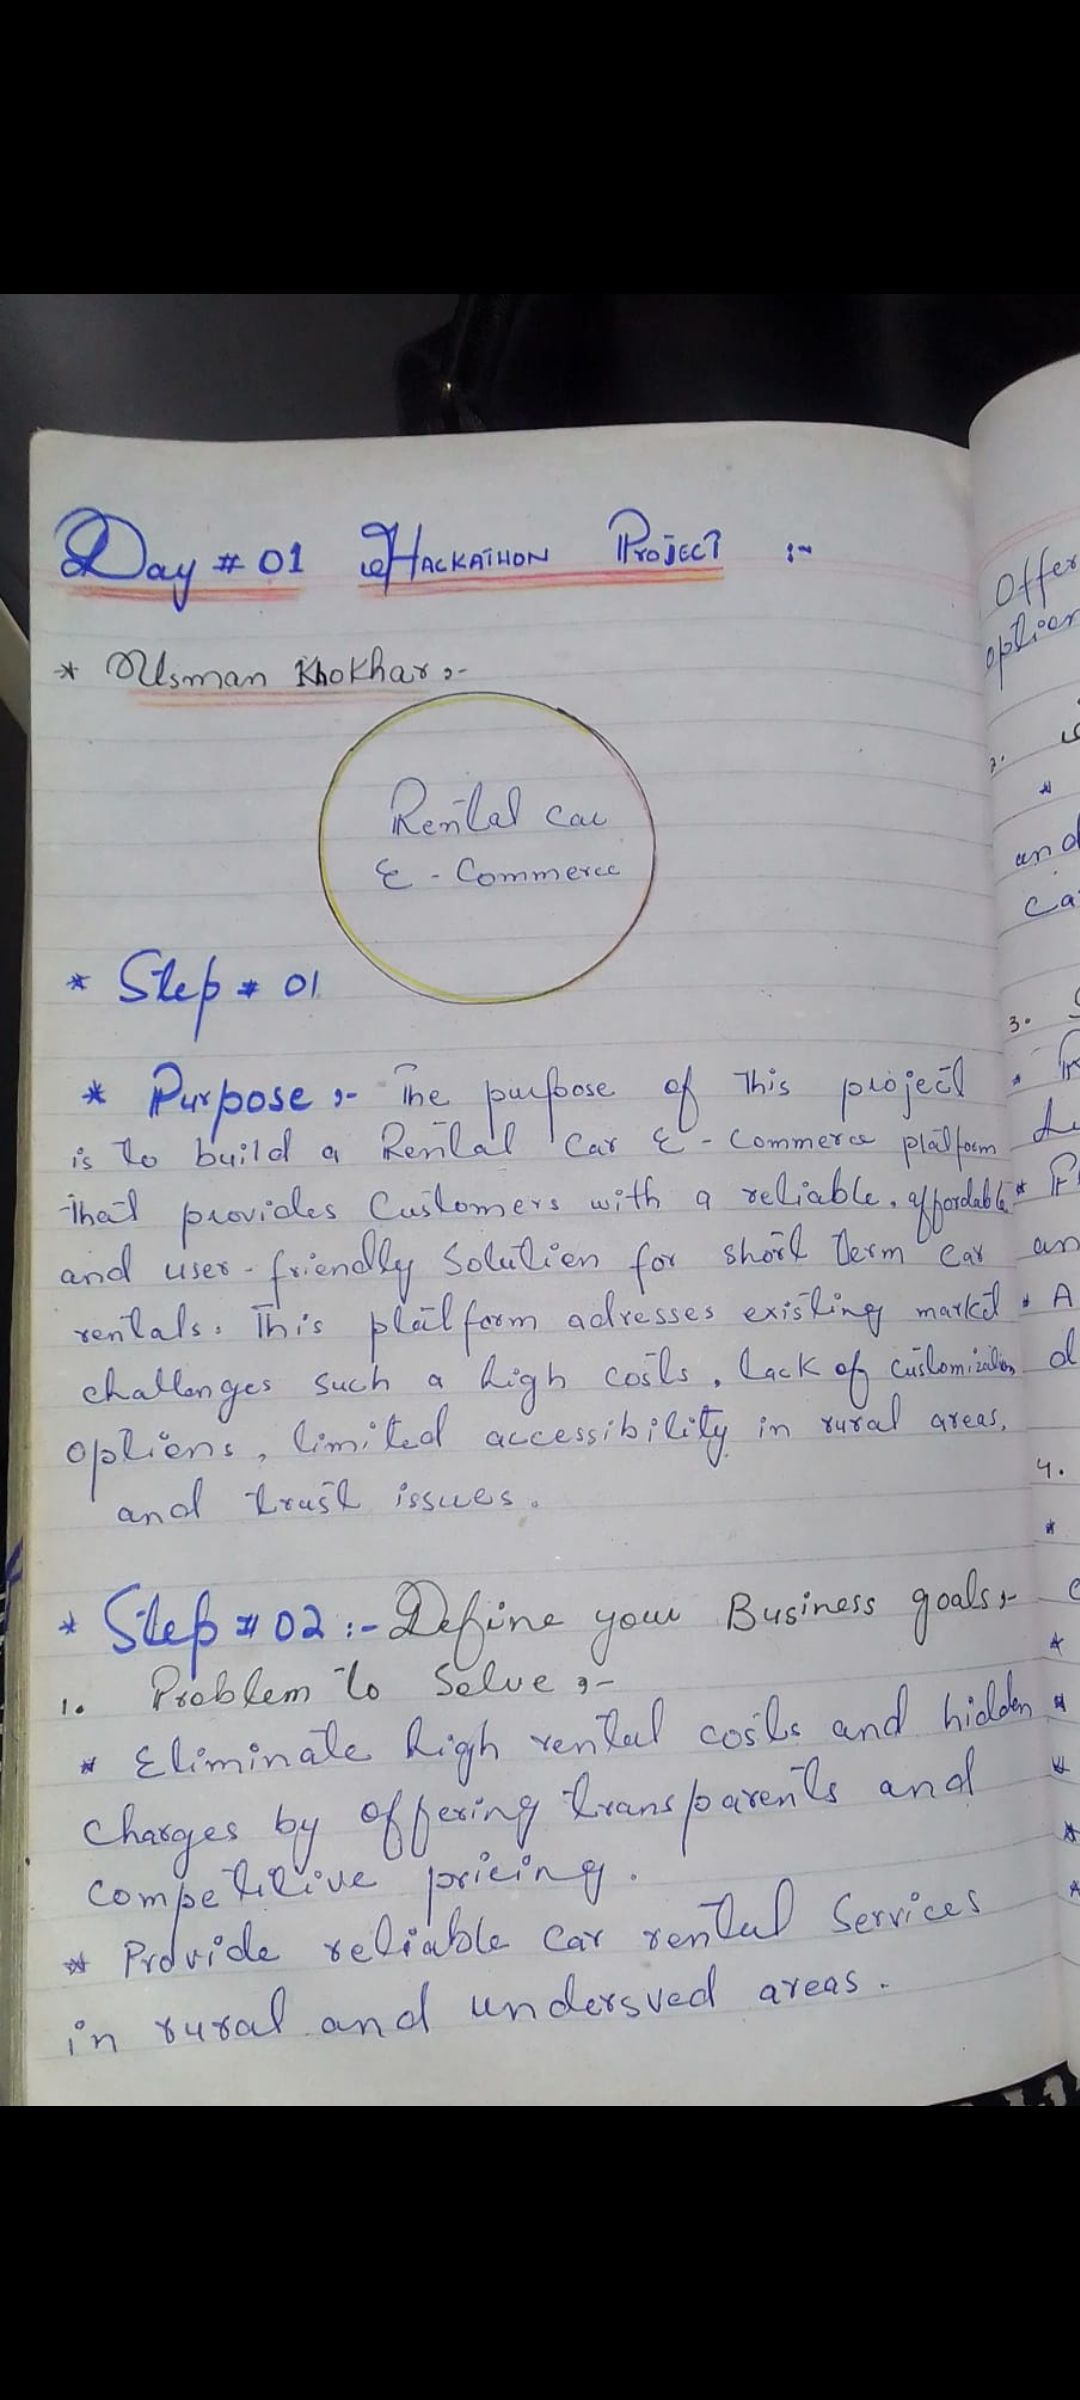 Day # 01 Hackathon Project :-
* Usman Khokhar :-
Rental Car
E - Commerce
* Step # 01
* Purpose :- The purpose of This project
is to build a Rental Car E - Commerce platform
that provides Customers with a reliable, affordable
and user - friendly Solution for short Term car
rentals. This platform adresses existing market
challenges such a high costs, lack of customization
options, limited accessibility in rural areas,
and trust issues.
* Step # 02 :- Define your Business goals :-
1. Problem to Solve :-
* Eliminate high rental costs and hidden
charges by offering transparents and
competitive pricing.
* Provide reliable Car rental Services
in rural and undersved areas.
Offer
option
2.
*
and
Ca
3.
*
*
an
* A
d
4.
*
*
*
*
*
*